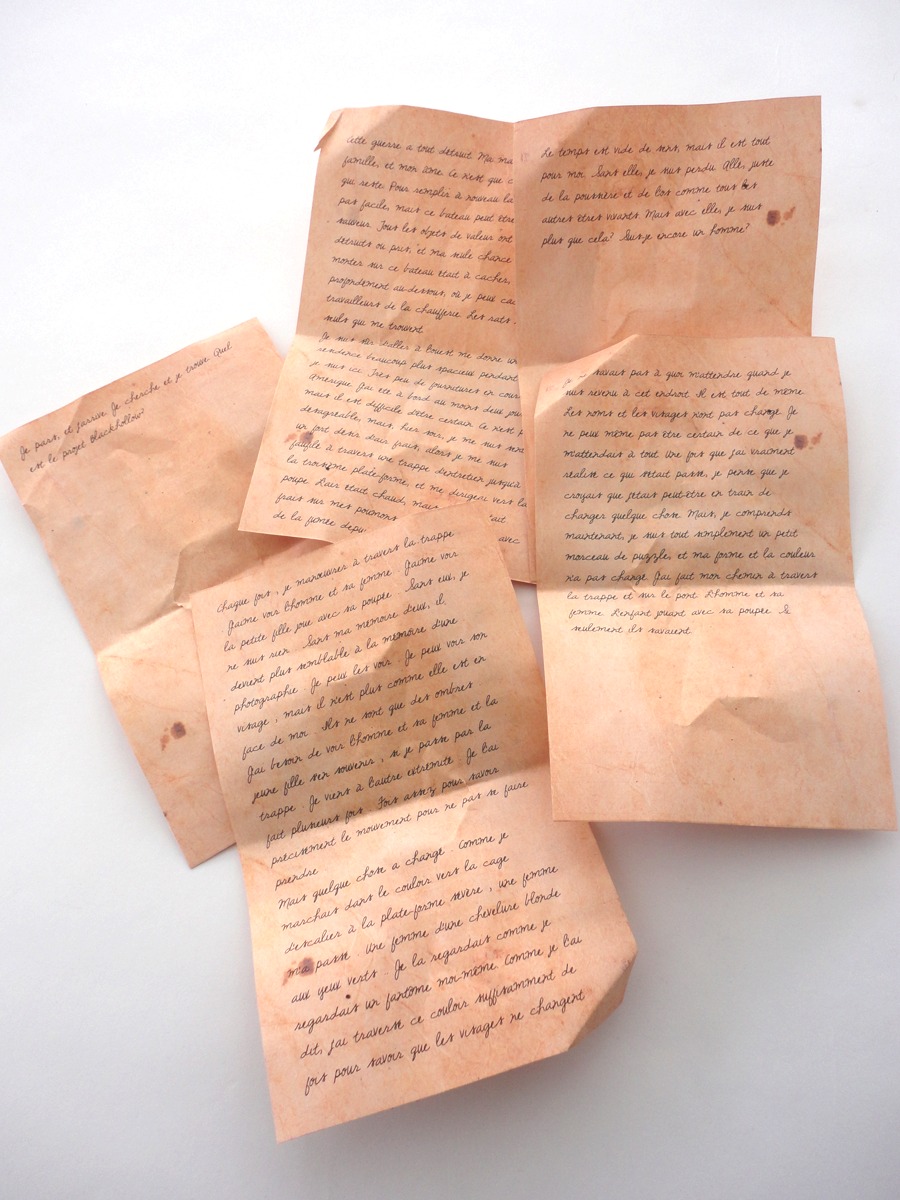 Cette guerre a tout détruit. Ma ma
famille, et mon âme. Ce n'est que c
qui reste. Pour remplir à nouveau la
pas facile, mais ce bateau peut être
sauveur. Tous les objets de valeur ont
détruits ou pris, et ma seule chance
monter sur ce bateau était à cacher,
profondement au-dessous, où je peux
travailleurs de la chaufferie. Les rats
seuls qui me trouvent.
Je suis sûr d'aller à l'ouest me donne un
beaucoup plus spacieux pendant
je suis ici. Très peu de fournitures en cour
Amérique. J'ai été à bord au moins deux jou
mais il est difficile d'être certain. Ce n'est p
desagréable, mais, hier soir, je me suis sen
un fort desir d'air frais, alors je me suis
faufilé à travers une trappe d'entretien jusqu'à
la troisième plate-forme, et me dirigeai vers la
poupe. L'air était chaud, mais était
frais sur mes poumons
de la fumée depu avec
Le temps est vide de sens, mais il est tout
pour moi. Sans elle, je suis perdu. Allé, juste
de la poussière et de l'os comme tous les
autres êtres vivants. Mais avec elle, je suis
plus que cela? Suis-je encore un homme?
Je pars, et j'arrive. Je cherche et je trouve. Quel
est le projet Blackhollow?
Je savais pas à quoi m'attendre quand je
suis revenu à cet endroit. Il est tout de même.
Les noms et les visages n'ont pas changé. Je
ne peux même pas être certain de ce que je
m'attendais à tout. Une fois que j'ai vraiment
réalisé ce que s'était passé, je pense que je
croyais que j'étais peut-être en train de
changer quelque chose. Mais, je comprends
maintenant, je suis tout simplement un petit
morceau de puzzle, et ma forme et la couleur
n'a pas changé. J'ai fait mon chemin à travers
la trappe et sur le pont. L'homme et sa
femme. L'enfant jouant avec sa poupée. Si
seulement ils savaient.
Chaque fois, je manœuvrer à travers la trappe.
J'aime voir l'homme et sa femme. J'aime voir
la petite fille joue avec sa poupée. Sans eux, je
ne suis rien. Sans ma mémoire d'eux, il
devient plus semblable à la mémoire d'une
photographie. Je peux les voir. Je peux voir son
visage, mais il n'est plus comme elle est en
face de moi. Ils ne sont que des ombres.
J'ai besoin de voir l'homme et sa femme et la
jeune fille s'en souvenir, si je passe par la
trappe. Je viens à l'autre extrémité. Je l'ai
fait plusieurs fois. Fois assez pour savoir
précisément le mouvement pour ne pas se faire
prendre.
Mais quelque chose a changé. Comme je
marchais dans le couloir vers la cage
d'escalier à la plate-forme sévère, une femme
m'a passé. Une femme d'une chevelure blonde
aux yeux verts. Je la regardais comme je
regardais un fantôme moi-même. Comme je l'ai
dit, j'ai traversé ce couloir suffisamment de
fois pour savoir que les visages ne changent